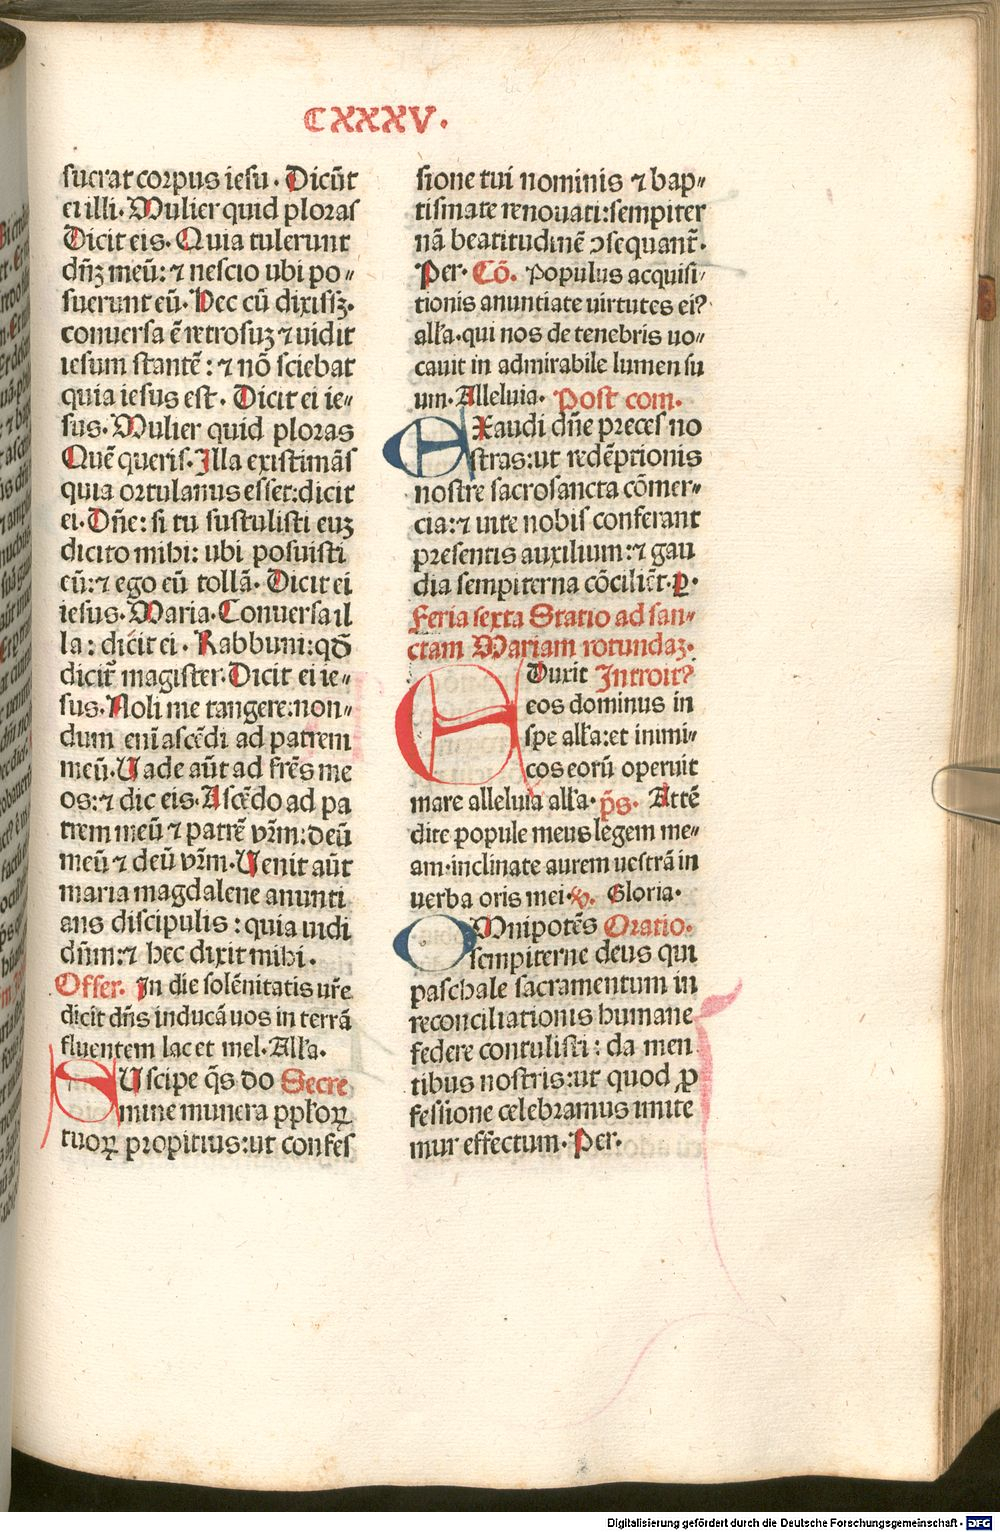 CXXXV.
sucrat corpus iesu. Dicūt
ei illi. Mulier quid ploras
Dicit eis. Quia tulerunt
dn̄ꝫ meū: ⁊ nescio ubi po⸗
suerunt eū. Hec cū dixissꝫ.
conuersa ē retrosuꝫ ⁊ uidit
iesum stantē: ⁊ nō sciebat
quia iesus est. Dicit ei ie⸗
sus. Mulier quid ploras
Quē queris. Illa existimās
quia ortulanus esset: dicit
ei. Dn̄e: si tu sustulisti euꝫ
dicito mihi: ubi posuisti
eū: ⁊ ego eū tollā. Dicit ei
iesus. Maria. Conuersa il
la: dicit ei. Rabbuni: qđ
dicit᷑ magister. Dicit ei ie⸗
sus. Noli me tangere: non⸗
dum eni ascēdi ad patrem
meū. Uade aūt ad frēs me
os: ⁊ dic eis. Ascēdo ad pa
trem meū ⁊ patrē vr̄m: deū
meū ⁊ deū vr̄m. Uenit aūt
maria magdalene anunti
ans discipulis: quia uidi
dn̄m: ⁊ hec dixit mihi.
Offer. In die solēnitatis ur̄e
dicit dn̄s inducā uos in terrā
fluentem lac et mel. Alła.
SUscipe q̄s do Secre
mine munera ppłoꝝ
tuoꝝ propitius: ut confes
sione tui nominis ⁊ bap⸗
tismate renouati: sempiter
nā beatitudinē ↄsequant᷑.
Per. Cō. Populus acquisi⸗
tionis anuntiate uirtutes ei?
alła. qui nos de tenebris uo⸗
cauit in admirabile lumen su
um. Alleluia. Post com.
EXaudi dn̄e preces no
stras: ut redēptionis
nostre sacrosancta cōmer⸗
cia: ⁊ uite nobis conferant
presentis auxilium: ⁊ gau
dia sempiterna cōciliēt. p.
Feria sexta Statio ad san⸗
ctam Mariam rotundaꝫ.
EDuxit Introit?
eos dominus in
spe alła: et inimi⸗
cos eorū operuit
mare alleluia alła. ps̄. Attē
dite popule meus legem me⸗
am. inclinate aurem uestrā in
uerba oris mei. ꝟ. Gloria.
OMnipotēs Oratio.
sempiterne deus qui
paschale sacramentum in
reconciliationis humane
federe contulisti: da men
tibus nostris: ut quod ꝓ
fessione celebramus imite
mur effectum. Per.
Digitalisierung gefördert durch die Deutsche Forschungsgemeinschaft - DFG